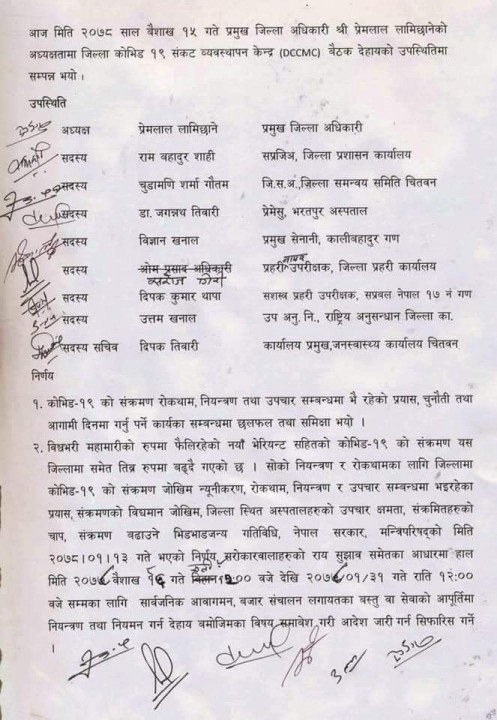 आज मिति २०७८ साल बैशाख १५ गते प्रमुख जिल्ला अधिकारी श्री प्रेमलाल लामिछानेको
अध्यक्षतामा जिल्ला कोभिड १९ संकट व्यवस्थापन केन्द्र (DCCMC) बैठक देहायको उपस्थितिमा
सम्पन्न भयो ।
उपस्थिति
अध्यक्ष प्रेमलाल लामिछाने प्रमुख जिल्ला अधिकारी
सदस्य राम बहादुर शाही सप्रजिअ, जिल्ला प्रशासन कार्यालय
सदस्य चुडामणि शर्मा गौतम जि.स.अ.,जिल्ला समन्वय समिति चितवन
सदस्य डा. जगन्नथ तिवारी प्रेमेसु, भरतपुर अस्पताल
सदस्य विज्ञान खनाल प्रमुख सेनानी, कालीबहादुर गण
सदस्य ओम प्रसाद अधिकारी प्रहरी नायव उपरीक्षक, जिल्ला प्रहरी कार्यालय
सदस्य दिपक कुमार थापा सशस्त्र प्रहरी उपरीक्षक, सप्रवल नेपाल १७ नं गण
सदस्य उत्तम खनाल उप अनु. नि., राष्ट्रिय अनुसन्धान जिल्ला का.
सदस्य सचिव दिपक तिवारी कार्यालय प्रमुख,जनस्वास्थ्य कार्यालय चितवन
निर्णय
१. कोभिड-१९ को संक्रमण रोकथाम, नियन्त्रण तथा उपचार सम्बन्धमा भै रहेको प्रयास, चुनौती तथा
आगामी दिनमा गर्नु पर्ने कार्यका सम्बन्धमा छलफल तथा समिक्षा भयो ।
२. विश्वभरी महामारीको रुपमा फैलिरहेको नयाँ भेरियन्ट सहितको कोभिड-१९ को संक्रमण यस
जिल्लामा समेत तिब्र रुपमा बढ्दै गएको छ । सोको नियन्त्रण र रोकथामका लागि जिल्लामा
कोभिड-१९ को संक्रमण जोखिम न्यूनीकरण, रोकथाम, नियन्त्रण र उपचार सम्बन्धमा भइरहेका
प्रयास, संक्रमणको विद्यमान जोखिम, जिल्ला स्थित अस्पतालहरुको उपचार क्षमता, संक्रमितहरुको
चाप, संक्रमण बढाउने भिडभाडजन्य गतिविधि, नेपाल सरकार, मन्त्रिपरिषद्को मिति
२०७८।०१।१३ गते भएको निर्णय, सरोकारवालाहरुको राय सुझाव समेतका आधारमा हाल
मिति बैशाख गते बजे देखि ०१/३१ गते राति १२:००
वजे सम्मका लागि सार्वजनिक आवागमन, बजार संचालन लगायतका बस्तु वा सेवाको आपूर्तिमा
नियन्त्रण तथा नियमन गर्न देहाय बमोजिमका बिषय समावेश गरी आदेश जारी गर्न सिफारिस गर्ने
।